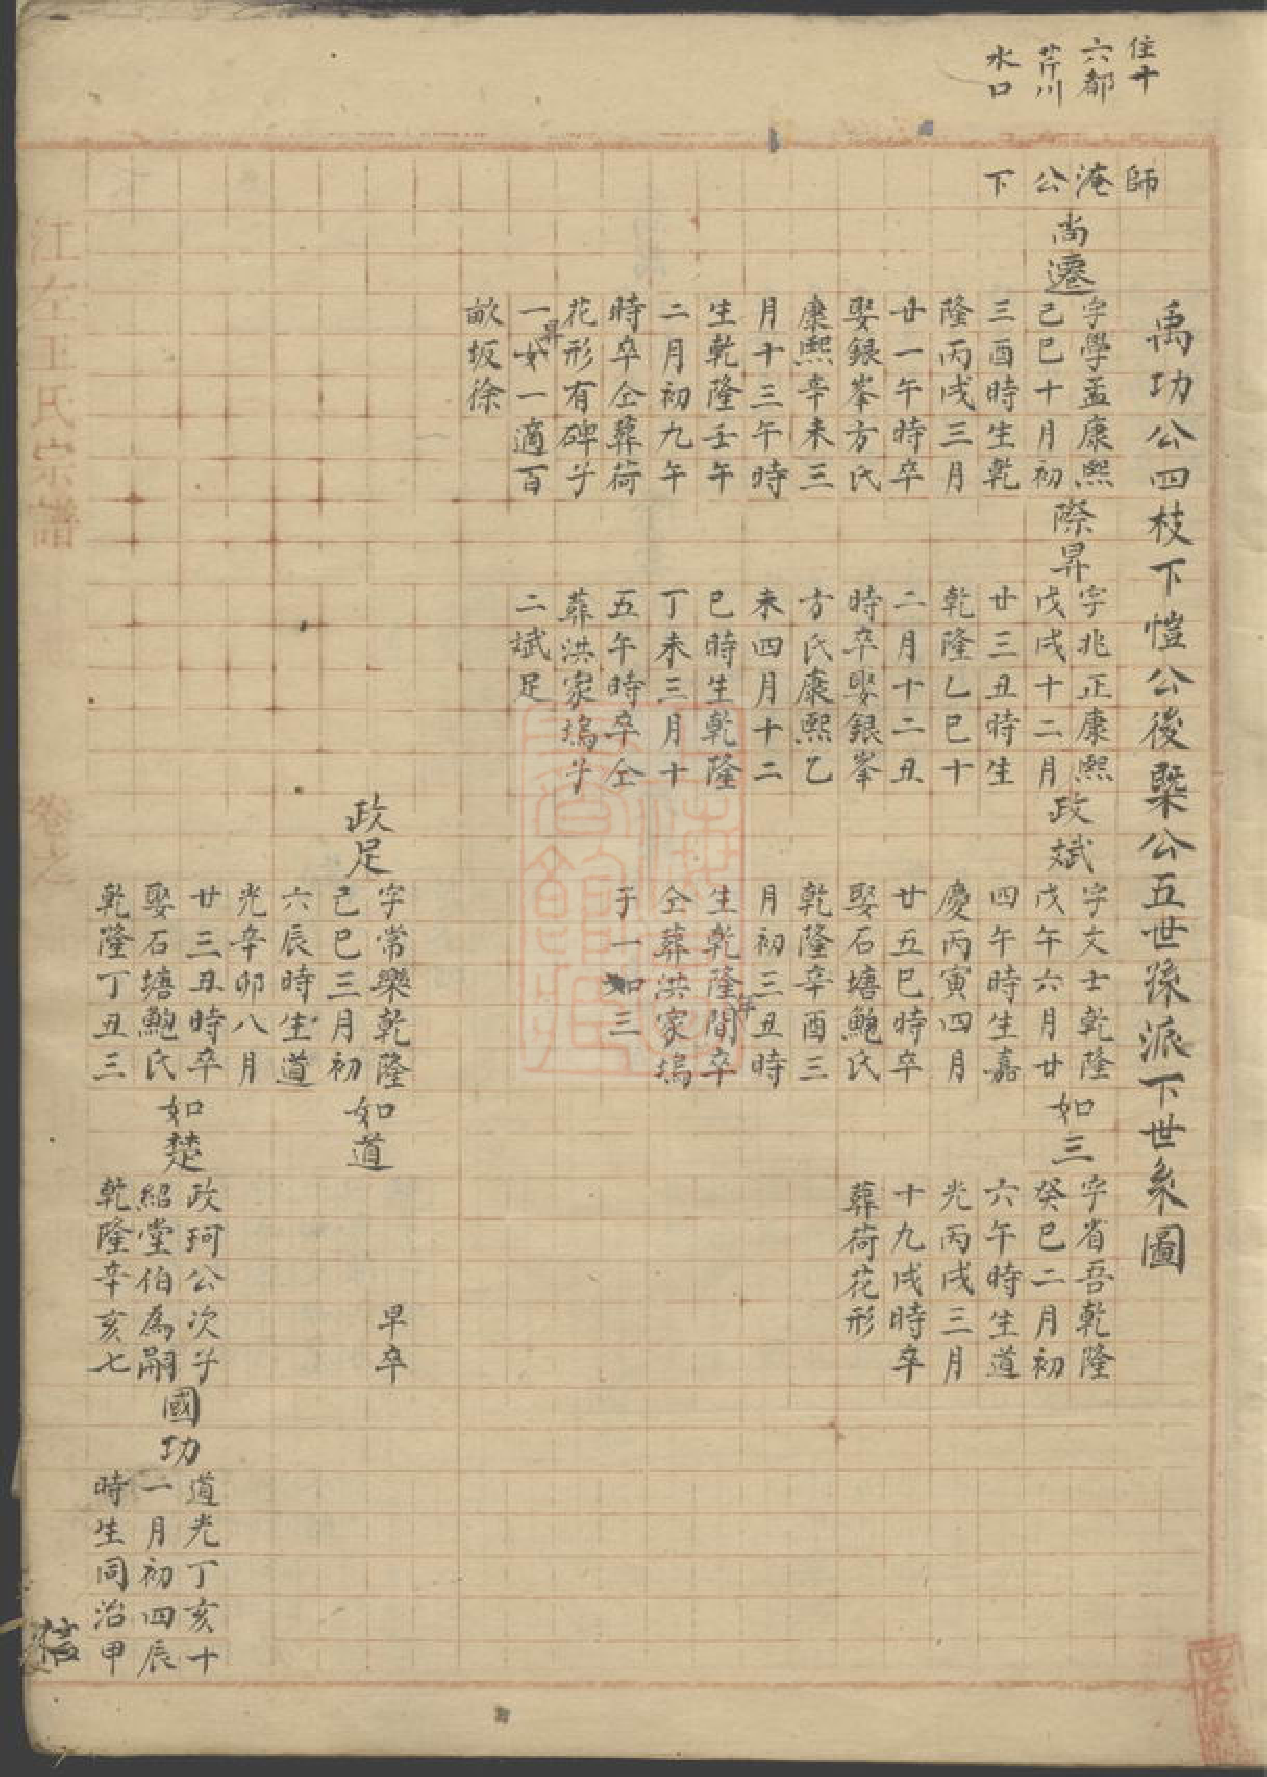 住十
六都
芹川
水口
師
淹
公
下
禹功公四枝下愷公後槩公五世孫派下世系圖
尚遷
字學孟康熙
己巳十月初
三酉時生乾
隆丙戌三月
廿一午時卒
娶銀峯方氏
康熙辛未三
月十三午時
生乾隆壬午
二月初九午
時卒仝葬荷
花形有碑子
一昇女一適百
畝坂徐
際昇
字兆正康熙
戊戌十二月
廿三丑時生
乾隆乙巳十
二月十二丑
時卒娶銀峯
方氏康熙乙
未四月十二
巳時生乾隆
丁未三月十
五午時卒仝
葬洪家塢子
二斌足
政斌
字文士乾隆
戊午六月廿
四午時生嘉
慶丙寅四月
廿五巳時卒
娶石塘鮑氏
乾隆辛酉三
月初三丑時
生乾隆間卒
仝葬洪家塢
子一如三
如三
字省吾乾隆
癸巳二月初
六午時生道
光丙戌三月
十九戌時卒
葬荷花形
政足
字常樂乾隆
己巳三月初
六辰時生道
光辛卯八月
廿三丑時卒
娶石塘鮑氏
乾隆丁丑三
如道
早卒
如楚
政珂公次子
紹堂伯為嗣
乾隆辛亥七
國功
道光丁亥十
一月初四辰
時生同治甲